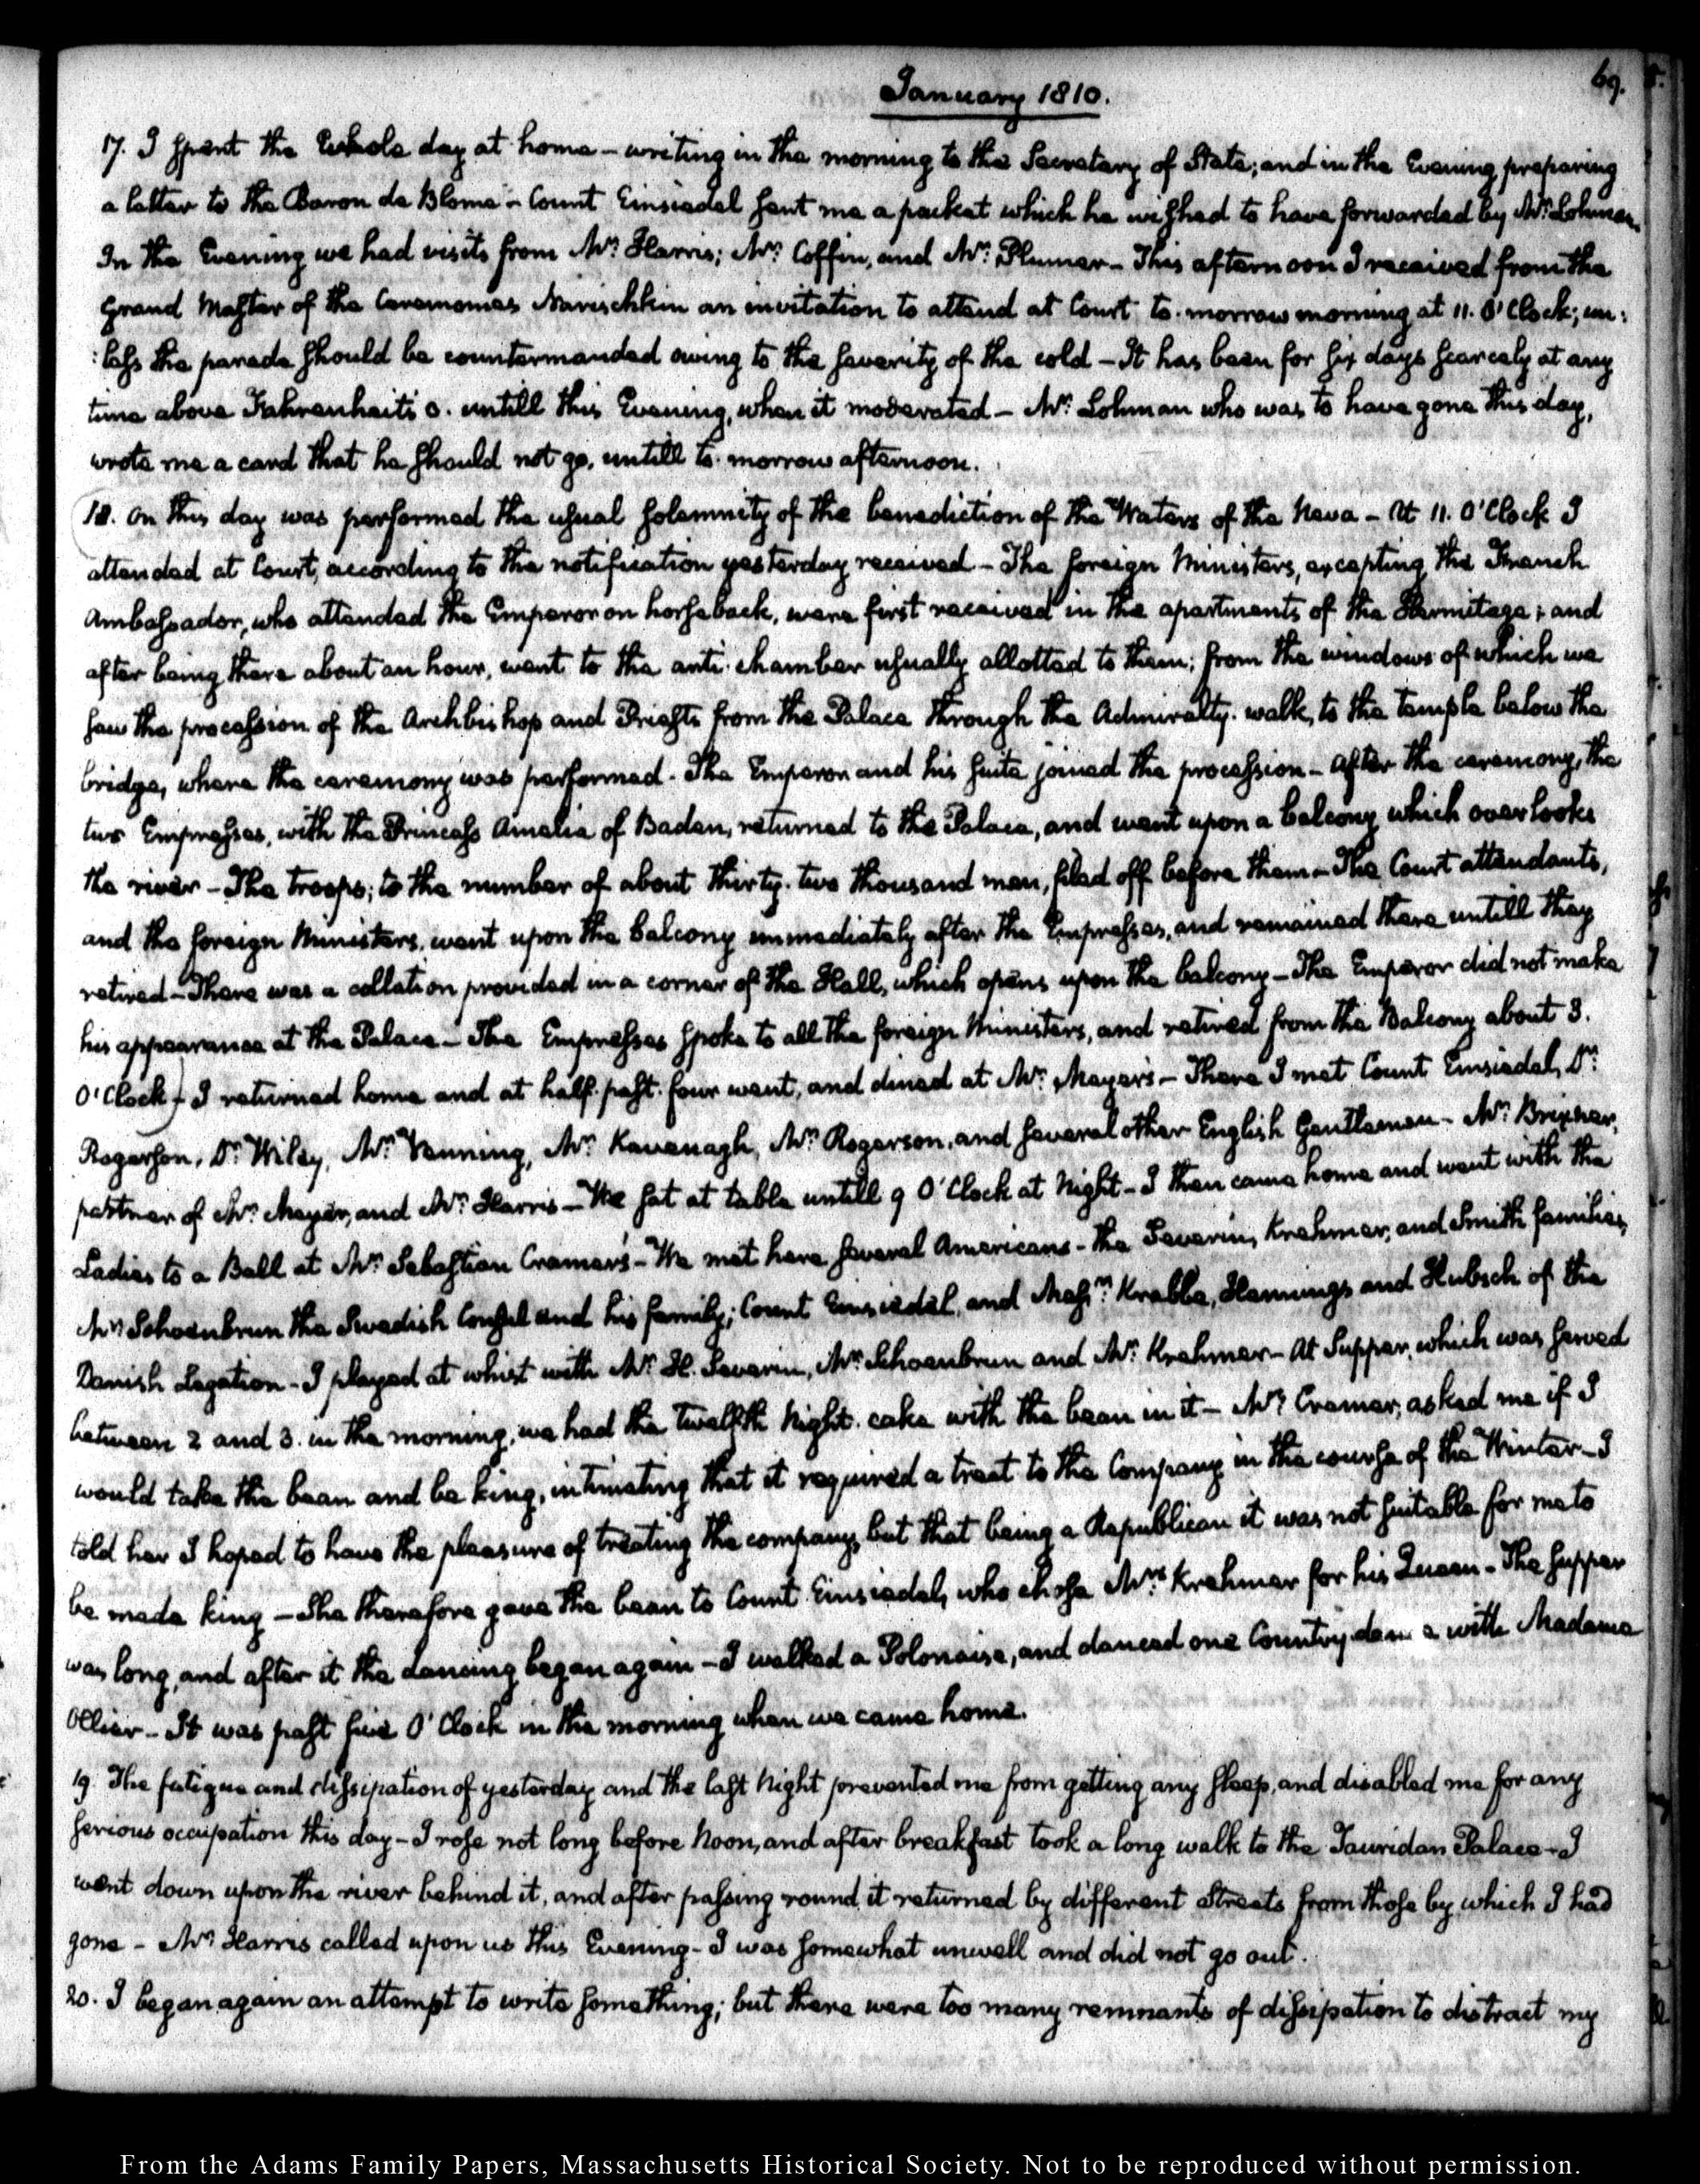 69.
January 1810.
17. I spent the whole day at home – writing in the morning to the Secretary of State; and in the Evening preparing
a letter to the Baron de Blome – Count Einsiedel sent me a packet which he wished to have forwarded by Mr. Lohman.
In the Evening we had visits from Mr. Harris; Mr. Coffin, and Mr. Plumer – This afternoon I received from the
Grand Master of the Ceremonies Narischkin an invitation to attend at Court to-morrow morning at 11. O'Clock; un:
:less the parade should be countermanded owing to the severity of the cold – It has been for six days scarcely at any
time above Fahrenheit's 0. untill this Evening, when it moderated – Mr. Lohman who was to have gone this day,
wrote me a card that he should not go, untill to-morrow afternoon.
18. On this day was performed the usual solemnity of the benediction of the Waters of the Neva – At 11. O'Clock I
attended at Court, according to the notification yesterday received – The foreign Ministers, excepting the French
Ambassador, who attended the Emperor on horseback, were first received in the apartments of the Hermitage; and
after being there about an hour, went to the anti-chamber usually allotted to them; from the windows of which we
saw the procession of the Archbishop and Priests from the Palace through the Admiralty-walk, to the temple below the
bridge, where the ceremony was performed. The Emperor and his suite joined the procession – After the ceremony, the
two Empresses, with the Princess Amelia of Baden, returned to the Palace, and went upon a balcony which overlooks
the river – The troops; to the number of about thirty-two thousand men, filed off before them – The Court attendants,
and the foreign Ministers, went upon the balcony immediately after the Empresses, and remained there untill they
retired – There was a collation provided in a corner of the Hall, which opens upon the balcony – The Emperor did not make
his appearance at the Palace – The Empresses spoke to all the foreign Ministers, and retired from the Balcony about 3.
O'Clock – I returned home and at half-past four went, and dined at Mr. Meyer's – There I met Count Einsiedel, Dr.
Rogerson, Dr. Wiley, Mr. Venning, Mr. Kavanagh, Mr. Rogerson, and several other English Gentlemen – Mr. Brixner,
partner of Mr. Meyer, and Mr. Harris – We sat at table untill 9 O'Clock at Night – I then came home and went with the
Ladies to a Ball at Mr. Sebastian Cramer's – We met here several Americans – the Severin, Krehmer, and Smith families,
Mr. Schoenbrun the Swedish Consul and his family; Count Einsiedel, and Messrs. Krabbe, Hennings and Hubsch of the
Danish Legation – I played at whist with Mr. H. Severin, Mr. Schoenbrun and Mr. Krehmer – At Supper, which was served
between 2 and 3. in the morning, we had the twelfth Night-cake with the bean in it – Mrs. Cramer, asked me if I
would take the bean and be king, intimating that it required a treat to the Company in the course of the Winter – I
told her I hoped to have the pleasure of treating the company, but that being a Republican it was not suitable for me to
be made king – She therefore gave the bean to Count Einsiedel, who chose Mrs. Krehmer for his Queen – The supper
was long, and after it the dancing began again – I walked a Polonaise, and danced one Country-dance with Madame
Ollier – It was past five O'Clock in the morning when we came home.
19. The fatigue and dissipation of yesterday and the last Night prevented me from getting any sleep, and disabled me for any
serious occupation this day – I rose not long before Noon, and after breakfast took a long walk to the Tauridan Palace – I
went down upon the river behind it, and after passing round it returned by different Streets from those by which I had
gone – Mr. Harris called upon us this Evening – I was somewhat unwell and did not go out.
20. I began again an attempt to write something; but there were too many remnants of dissipation to distract my
From the Adams Family Papers, Massachusetts Historical Society. Not to be reproduced without permission.